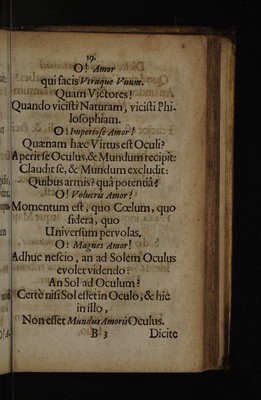 19.
O! Amor
qui facis Utraque Unum.
Quam Victores!
Quando vicisti Naturam, vicisti Phi-
losophiam.
O! Imperiose Amor!
Quænam hæc Virtus est Oculi?
Aperit se Oculus, & Mundum recipit:
Claudit se, & Mundum excludit:
Quibus armis? quâ potentiâ?
O! Volucris Amor!
Momentum est, quo Cœlum, quo
sidera, quo
Universum pervolas,
O! Magnes Amor!
Adhuc nescio, an ad Solem Oculus
evolet videndo:
An Sol ad Oculum?
Certè nisi Sol esset in Oculo, & hic
in illo,
Non esset Mundus Amoris Oculus.
B 3 Dicite